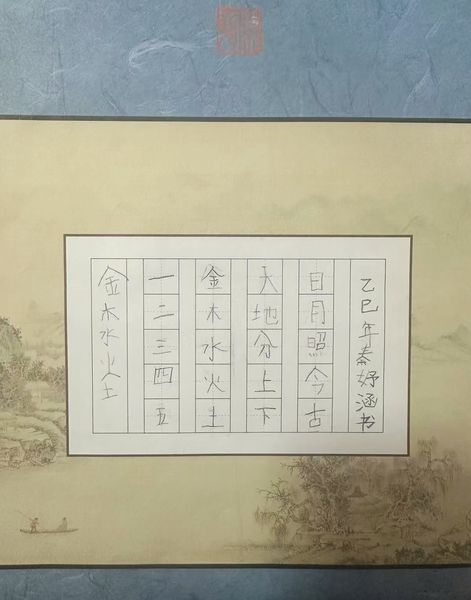 金木水火土
一二三四五
金木水火土
天地分上下
日月照今古
乙巳年秦妤涵书